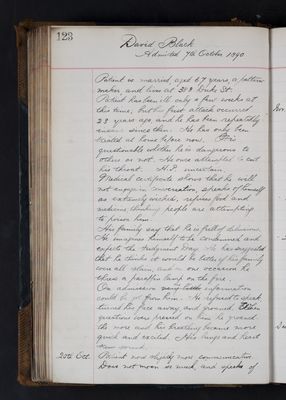 123
David Black
Admitted 7th October 1890
Patient is married, aged 67 years, a pattern
maker, and lives at
Patient has been ill only a few weeks at
this time, but the first attack occurred
23 years ago, and he has been repeatedly
insane since then. He has only been
treated at home before now. It is
questionable whether he is dangerous to
others or not. He once attempted to cut
his throat. H.P. uncertain.
Medical certificate shows that he will
not engage in conversation, speaks of himself
as extremely wicked, refuses food and
medicine thinking people are attempting
to poison him.
His family say that he is full of delusions.
He imagines himself to be condemned and
expects the Judgment Day. He has suggested
that he thinks it would be better if his family
were all slain, and on one occasion he
threw a paraffin lamp on the fire.
On admission very little information
could be got from him. He refused to speak
turned his face away and groaned. When
questions were pressed on him he groaned
the more and his breathing became more
quick and excited. His lungs and heart
were sound.
20th Oct. Patient now slightly more communicative.
Does not moan so much, and speaks of
Nov.